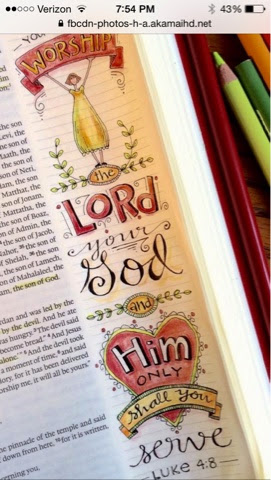 Verizon 7:54 PM 43%
fbcdn-photos-h-a.akamaihd.net
WORSHIP
the
LORD
your
God
and
Him
ONLY
shall you
serve
LUKE 4:8
the son of
Levi, the
son of
Maath, the
son of Neri,
dam, the son
of Matthat, the
son of Jonam,
Mattatha, the
of Boaz,
of Admin, the
of Jacob,
the son of
of Shelah, the son
son of Lamech,
of Mahalaleel, the
am, the son of God.
rdan and was led by the
by the devil. And he ate
was hungry. The devil said
become bread." And Jesus
alone.' And the devil took
a moment of time, and said
lory, for it has been delivered
worship me, it will all be yours."
the pinnacle of the temple and said
down from here, for it is written,
cerning you,